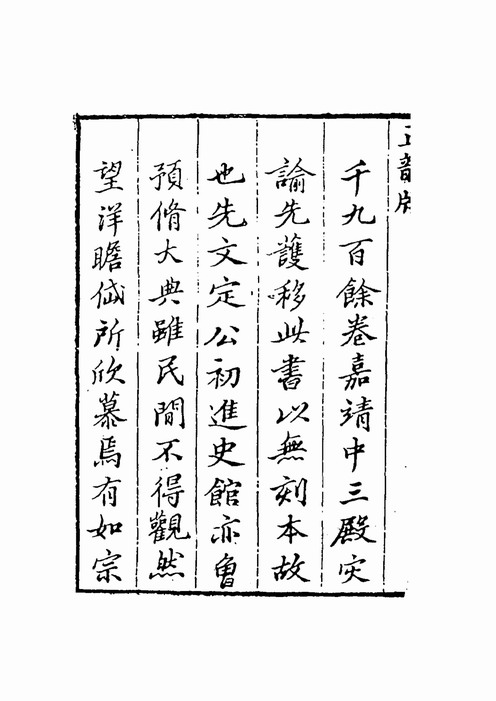 千九百餘卷嘉靖中三殿灾
諭先護移此書以無刻本故
也先文定公初進史館亦曾
預脩大典雖民間不得觀然
望洋瞻㑽所欣慕焉有如宗